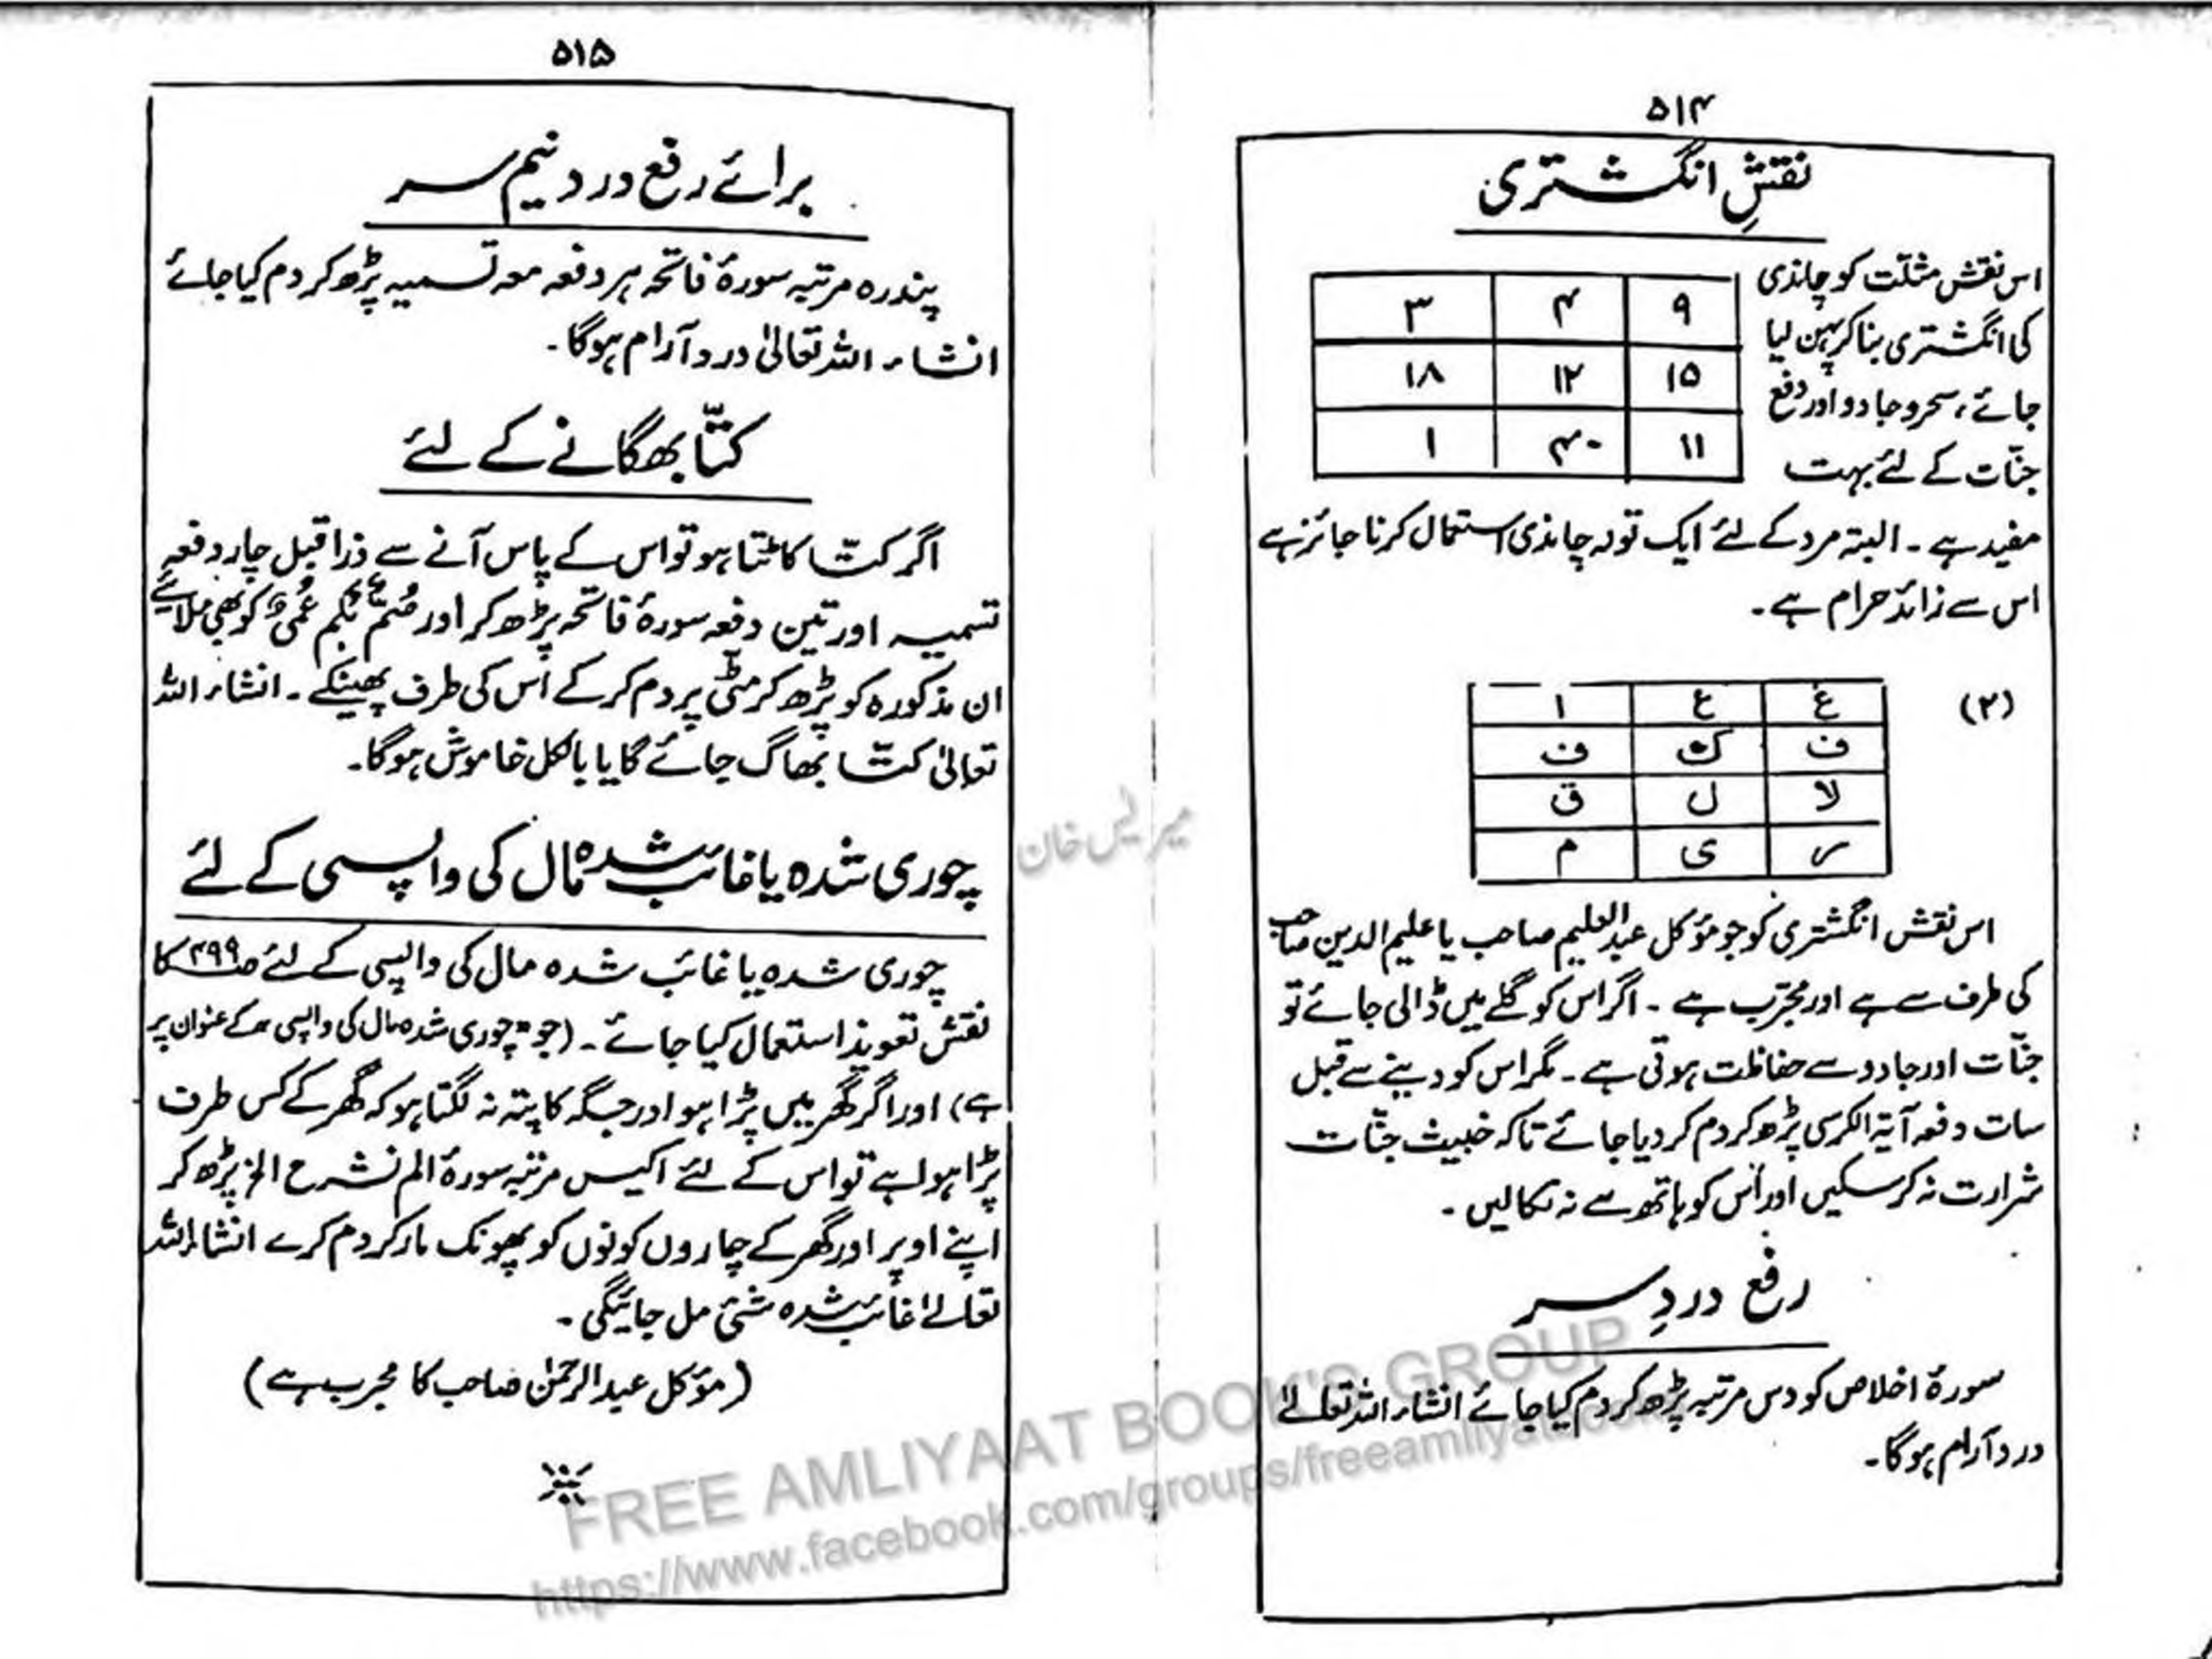 ۵۱۴
نقشِ انگشتری
اس نقش مثلّت کو چاندی
کی انگشتری بنا کر پہن لیا
جائے، سحر و جادو اور دفع
جنّات کے لئے بہت
۹ ۴ ۳
۱۵ ۱۲ ۱۸
۱۱ ۴۰ ۱
مفید ہے ۔ البتہ مرد کے لئے ایک تولہ چاندی استعمال کرنا جائز ہے
اس سے زائد حرام ہے ۔
(۲)
غ ع ا
ف ک ف
لا ل ق
ر ی م
اس نقش انگشتری کو جو مؤکل عبدالعلیم صاحب یا علیم الدین صاحب
کی طرف سے ہے اور مجرّب ہے ۔ اگر اس کو گلے میں ڈالی جائے تو
جنّات اور جادو سے حفاظت ہوتی ہے ۔ مگر اس کو دینے سے قبل
سات دفعہ آیۃ الکرسی پڑھ کر دم کر دیا جائے تاکہ خبیث جنّات
شرارت نہ کر سکیں اور اُس کو ہاتھ سے نہ نکالیں ۔
رفع دردِ سر
سورۂ اخلاص کو دس مرتبہ پڑھ کر دم کیا جائے انشاء اللہ تعالےٰ
درد آرام ہوگا ۔
۵۱۵
برائے رفع درد نیم سر
پندرہ مرتبہ سورۂ فاتحہ ہر دفعہ معہ تسمیہ پڑھ کر دم کیا جائے
انشاء اللہ تعالیٰ درد آرام ہوگا ۔
کتّا بھگانے کے لئے
اگر کتّا کاٹتا ہو تو اس کے پاس آنے سے ذرا قبل چار دفعہ
تسمیہ اور تین دفعہ سورۂ فاتحہ پڑھ کر اور صُمٌّ بُکْمٌ عُمْیٌ کو بھی ملائے
ان مذکورہ کو پڑھ کر مٹی پر دم کر کے اُس کی طرف پھینکے ۔ انشاء اللہ
تعالیٰ کتّا بھاگ جائے گا یا بالکل خاموش ہوگا ۔
چوری شدہ یا غائب شدہ مال کی واپسی کے لئے
چوری شدہ یا غائب شدہ مال کی واپسی کے لئے صـ۴۹۹ کا
نقش تعویذ استعمال کیا جائے ۔ (جو "چوری شدہ مال کی واپسی" کے عنوان پر
ہے) اور اگر گھر میں پڑا ہو اور جگہ کا پتہ نہ لگتا ہو کہ گھر کے کس طرف
پڑا ہوا ہے تو اس کے لئے اکیس مرتبہ سورۂ الم نشرح الخ پڑھ کر
اپنے اوپر اور گھر کے چاروں کونوں کو پھونک مار کر دم کرے انشاء اللہ
تعالےٰ غائب شدہ شئی مل جائیگی ۔
(مؤکل عبدالرحمٰن صاحب کا مجرب ہے)
FREE AMLIYAAT BOOK'S GROUP